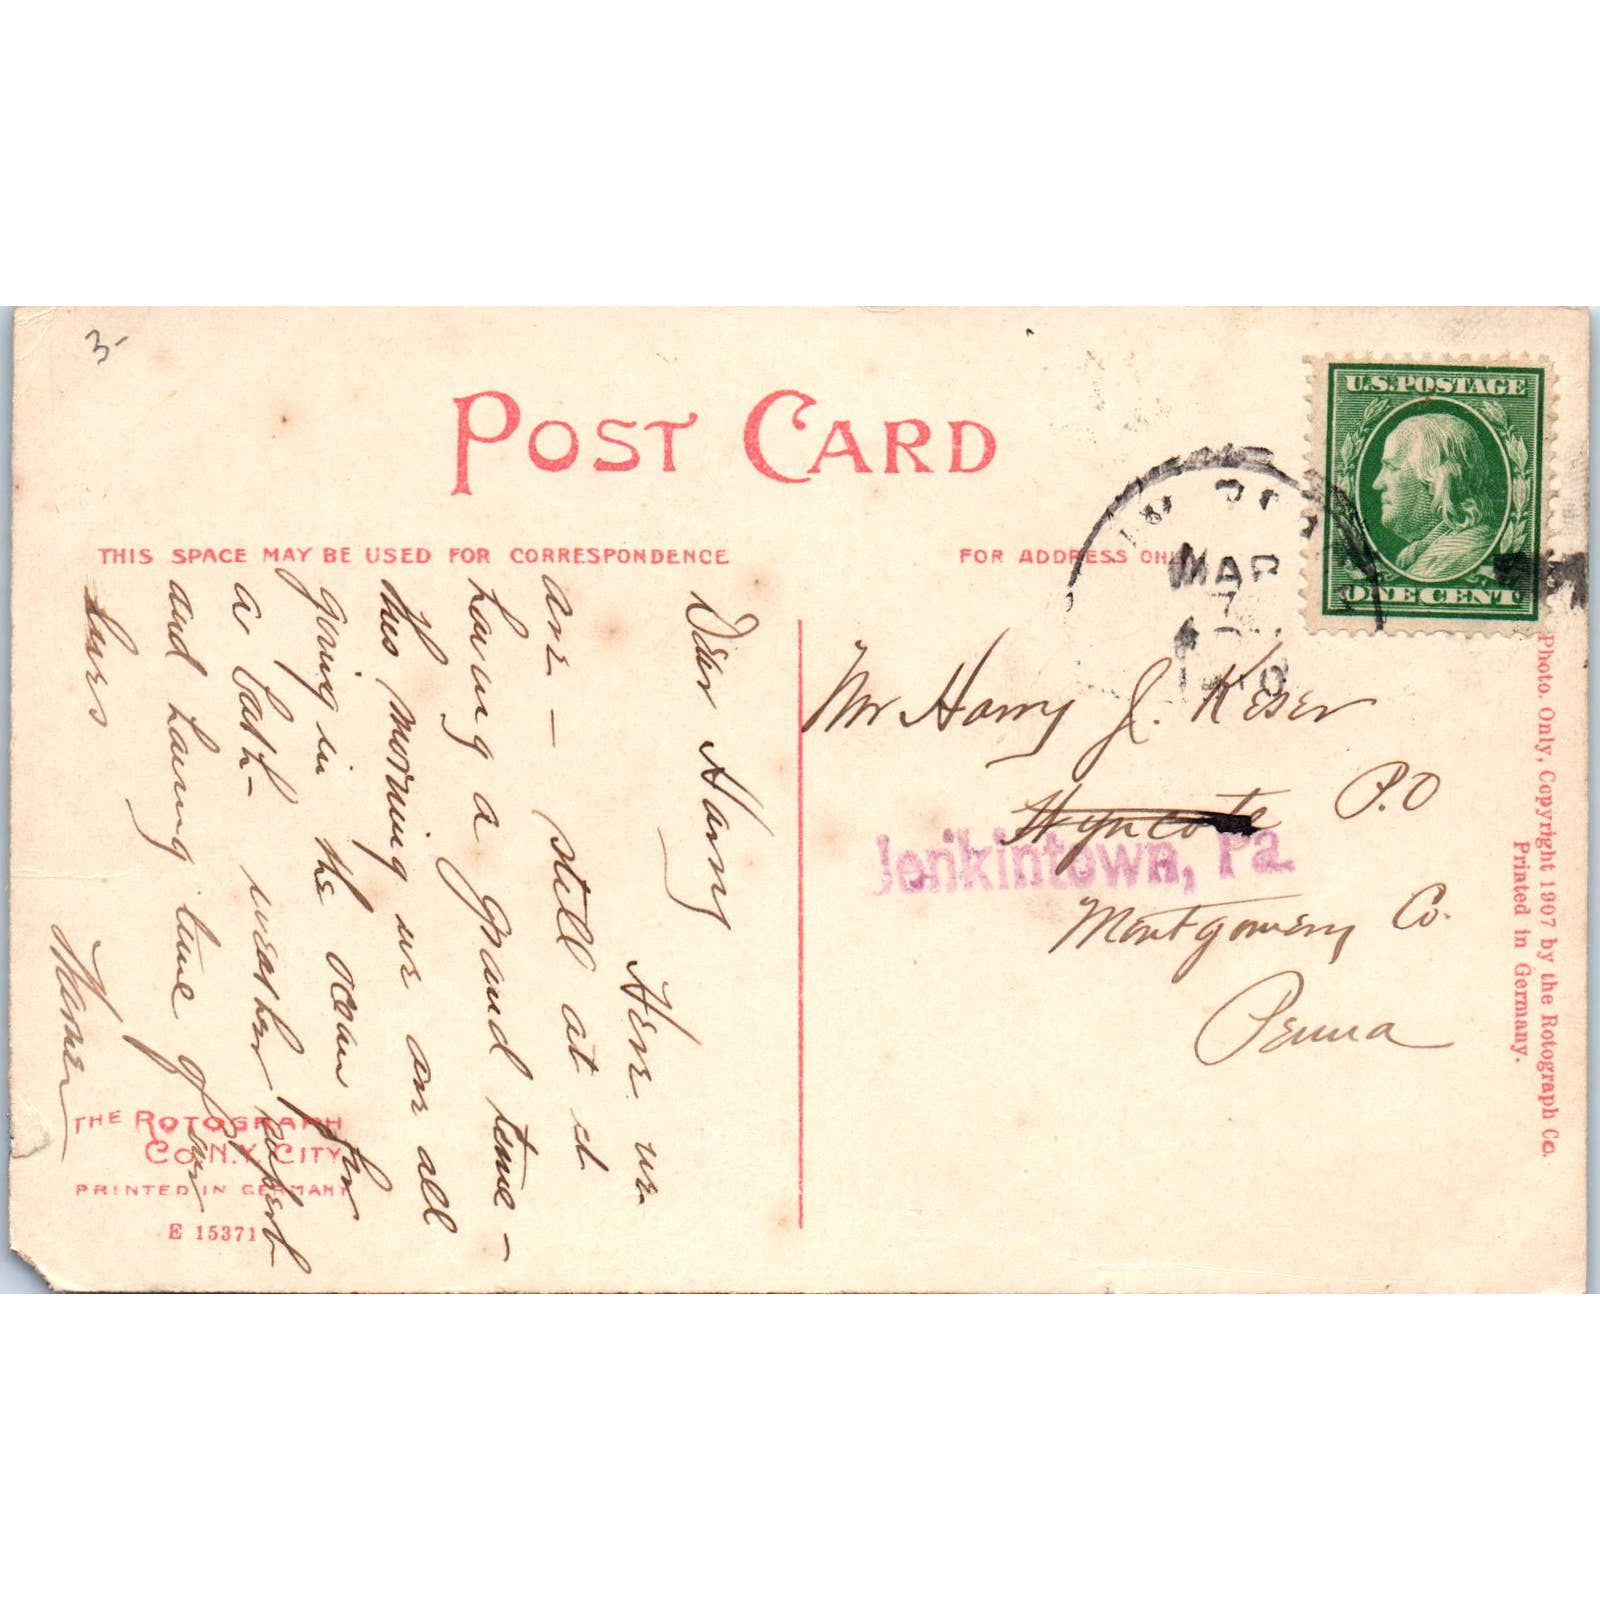 3-
POST CARD
THIS SPACE MAY BE USED FOR CORRESPONDENCE
FOR ADDRESS ONL
U.S. POSTAGE
ONE CENT
MAR
7
Dear Harry
Here we
are – still at it
having a grand time –
this morning we are all
going in the ocean for
a bath – weather
and having time of our
lives
Mr Harry J. Keser
Wyncote P.O
Jenkintown, Pa.
Montgomery Co.
Penna
THE ROTOGRAPH
CO. N.Y. CITY
PRINTED IN GERMANY
E 15371
Photo. Only, Copyright 1907 by the Rotograph Co.
Printed in Germany.